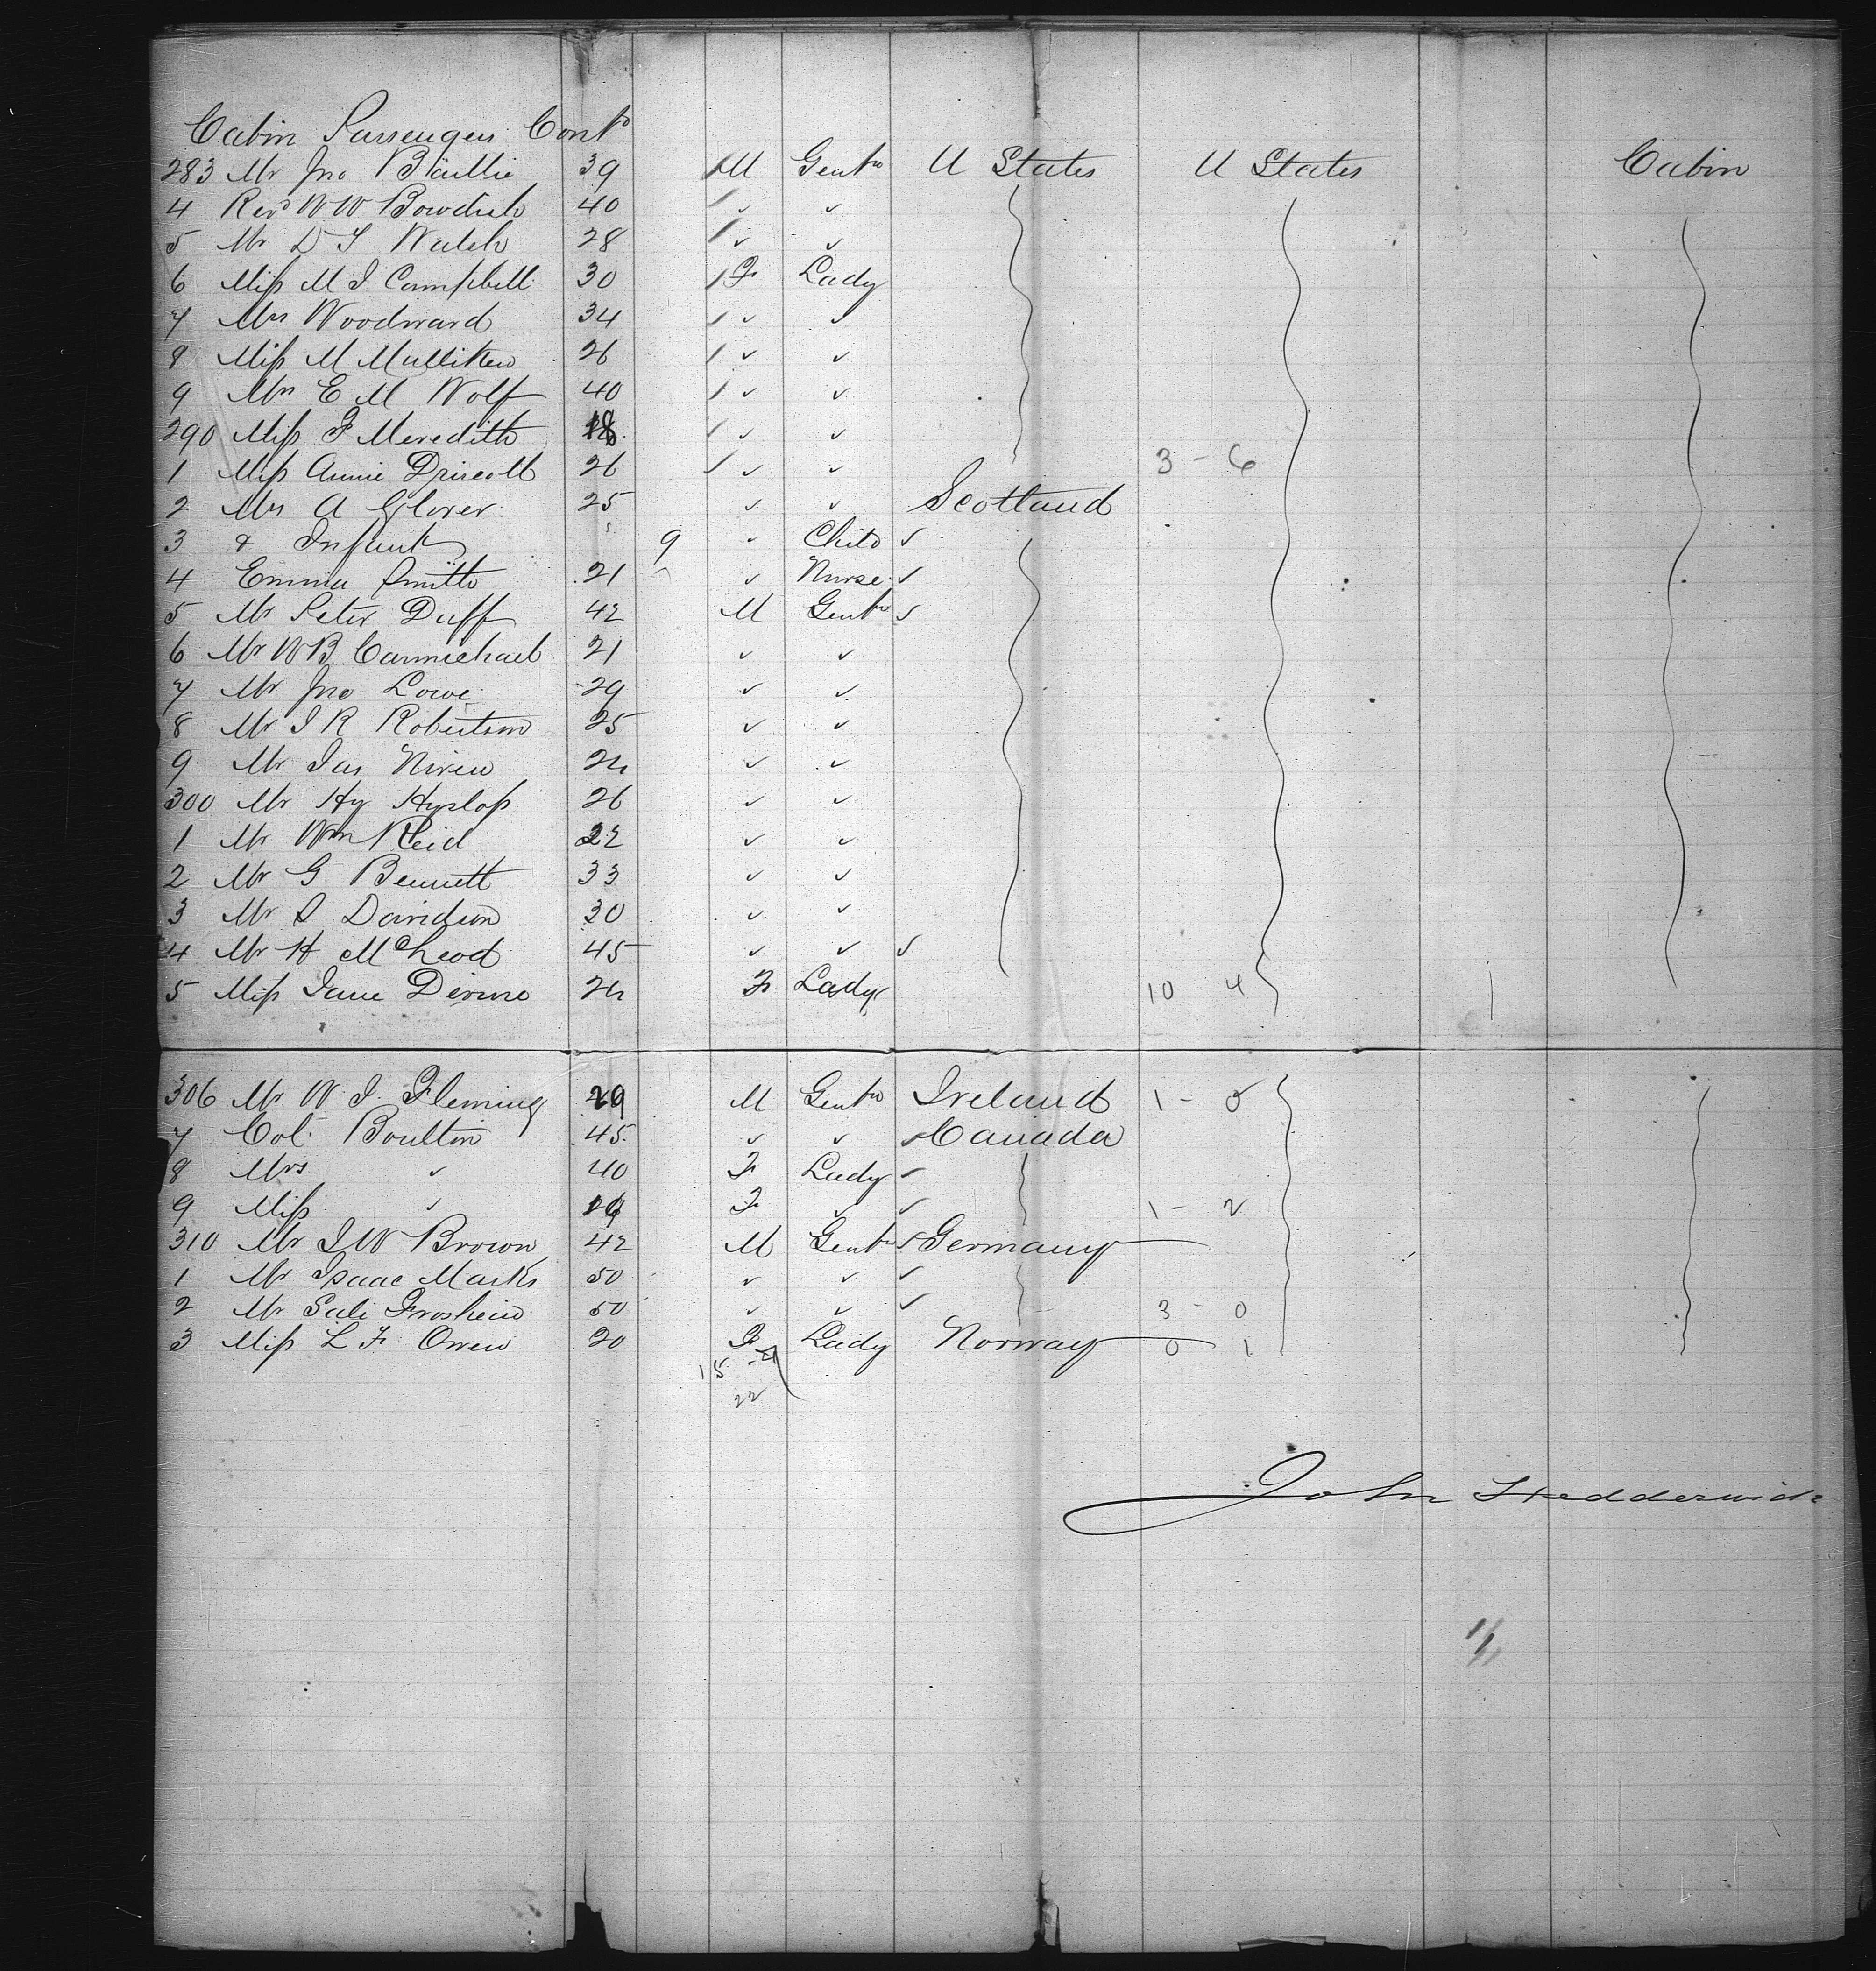 Cabin Passengers Contd
283 Mr Jno Baillie 39 M Gentn U States U States Cabin
4 Revd W W Bowdish 40 ✓ ✓
5 Mr D T Walsh 28 ✓ ✓
6 Miss M J Campbell 30 F Lady
7 Mrs Woodward 34 ✓ ✓
8 Miss M Mulliken 26 ✓ ✓
9 Mrs E M Wolf 40 ✓ ✓
290 Miss F Meredith 18 ✓ ✓
1 Miss Annie Driscoll 26 ✓ ✓ 3 - 6
2 Mrs A Glover 25 ✓ ✓ Scotland
3 & Infant 9 ✓ Child ✓
4 Emma Smith 21 ✓ Nurse ✓
5 Mr Peter Duff 42 M Gentn ✓
6 Mr W B Carmichael 21 ✓ ✓
7 Mr Jno Lowe 29 ✓ ✓
8 Mr J R Robertson 25 ✓ ✓
9 Mr Jas Niven 24 ✓ ✓
300 Mr Hy Hyslop 26 ✓ ✓
1 Mr Wm Reid 22 ✓ ✓
2 Mr G Bennett 33 ✓ ✓
3 Mr Davidson 30 ✓ ✓
4 Mr H McLeod 45 ✓ ✓ ✓
5 Miss Jane Devine 24 F Lady 10 4
306 Mr W J Fleming 29 M Gentn Ireland 1 - 0
7 Col. Boulton 45 ✓ ✓ ✓ Canada
8 Mrs ✓ 40 F Lady ✓
9 Miss ✓ 19 F ✓ ✓ 1 - 2
310 Mr J W Brown 42 M Gentn ✓ Germany
1 Mr Isaac Marks 50 ✓ ✓ ✓
2 Mr Froshein 50 ✓ ✓ ✓ 3 - 0
3 Miss L F Owen 20 F Lady Norway 0 1
15
22
John Hedderwick